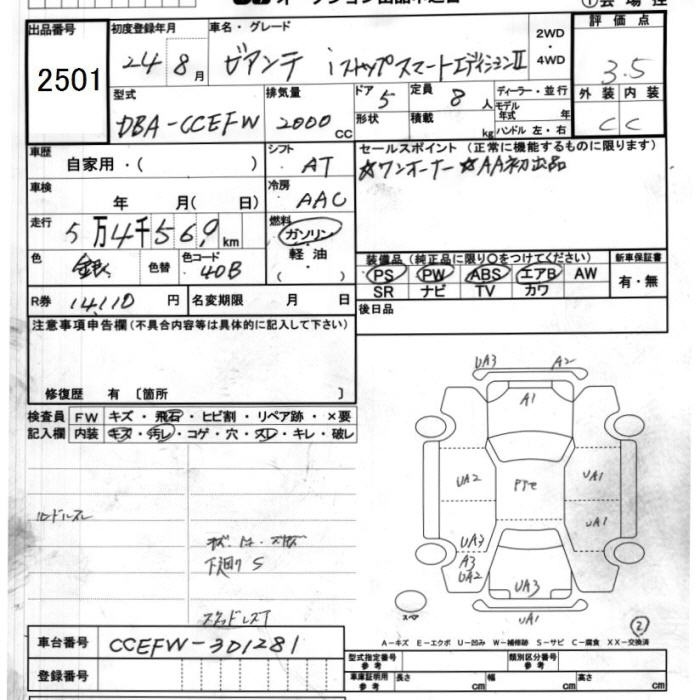 オークション出品申込書
①会場控
出品番号
2501
初度登録年月
24 8月
車名・グレード
ビアンテ iストップスマートエディションⅡ
2WD
・
4WD
評価点
3.5
型式
DBA-CCEFW
排気量
2000 CC
ドア 5
形状
定員 8人
積載 kg
ディーラー・並行
モデル年式 年
ハンドル 左・右
外装 内装
C C
車歴
自家用・( )
シフト
AT
セールスポイント(正常に機能するものに限ります)
☆ワンオーナー ☆AA初出品
車検
年 月( 日)
冷房
AAC
走行
5万4千569km
燃料
ガソリン
・
軽油
・
( )
色
銀
色替
色コード
40B
装備品(純正品に限り○をつけてください)
PS PW ABS エアB AW
SR ナビ TV カワ
新車保証書
有・無
R券 14,110円
名変期限 月 日
後日品
注意事項申告欄(不具合内容等は具体的に記入して下さい)
修復歴 有 〔箇所 〕
検査員 FW キズ・飛石・ヒビ割・リペア跡・×要
記入欄 内装 キズ・汚レ・コゲ・穴・スレ・キレ・破レ
下廻りS
UA3 A2
A1
UA2 UA1
UA1
UA3
A3
UA2
UA3
UA1
スペア
②
A-キズ E-エクボ U-凹み W-補修跡 S-サビ C-腐食 XX-交換済
車台番号 CCEFW-301281
登録番号
型式指定番号 参考
類別区分番号 参考
車庫証明用 参考 長さ cm 幅 cm 高さ cm